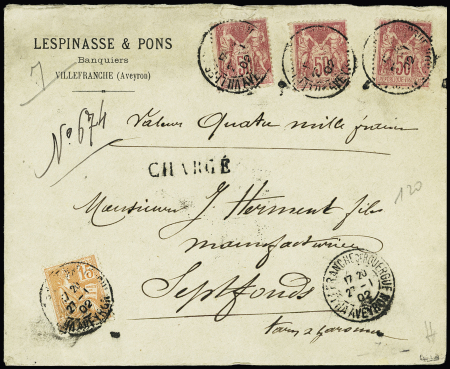 LESPINASSE & PONS
Banquiers
VILLEFRANCHE (Aveyron)
50
50
No 674
Valeur Quatre mille francs
CHARGÉ
120
Monsieur J Herment fils
manufacturier
Septfonds
Tarn & Garonne
15
VILLEFRANCHE-DE-ROUERGUE
17 20
2 -1
02
AVEYRON